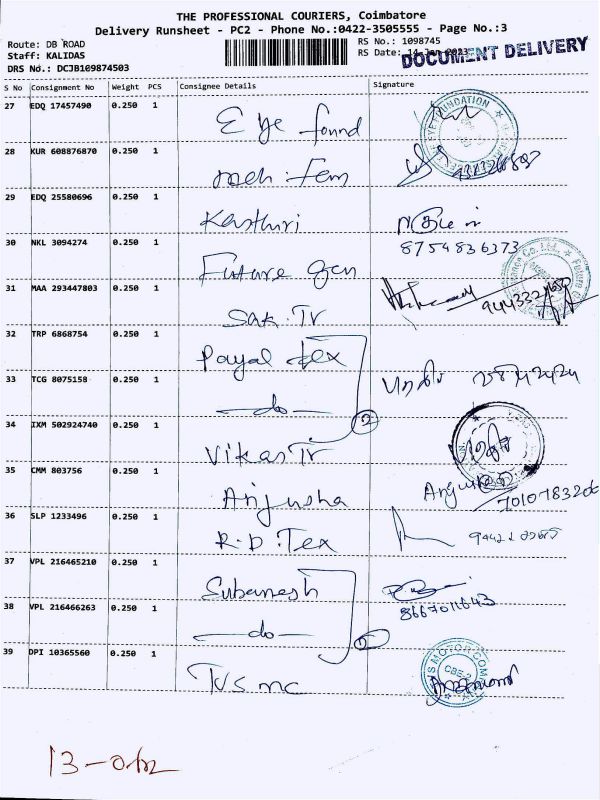 THE PROFESSIONAL COURIERS, Coimbatore
Delivery Runsheet - PC2 - Phone No.:0422-3505555 - Page No.:3
Route: DB ROAD
RS No.: 1098745
Staff: KALIDAS
RS Date: 14-Jan-2023
DOCUMENT DELIVERY
DRS No.: DCJB109874503
S No Consignment No Weight PCS Consignee Details Signature
27 EDQ 17457490 0.250 1 Eye found
28 KUR 608876870 0.250 1
29 EDQ 25580696 0.250 1 Kasthuri
8754836373
30 NKL 3094274 0.250 1 Future gen
31 MAA 293447803 0.250 1 Sak. Tr
32 TRP 6868754 0.250 1 Payal tex
33 TCG 8075158 0.250 1 —do—
2
34 IXM 502924740 0.250 1 Vikas Tr
35 CMM 803756 0.250 1 Anjusha
36 SLP 1233496 0.250 1 R.D.Tex
37 VPL 216465210 0.250 1 Subanesh
8667011643
38 VPL 216466263 0.250 1 —do—
39 DPI 10365560 0.250 1 TVS mc
CBE-2